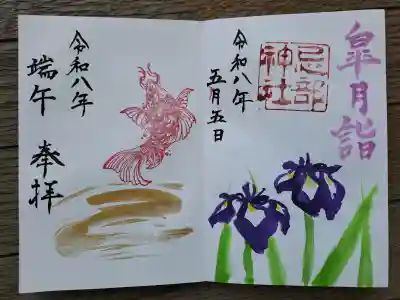 皐月詣
忌部神社
令和八年
五月五日
奉拝
端午
令和八年